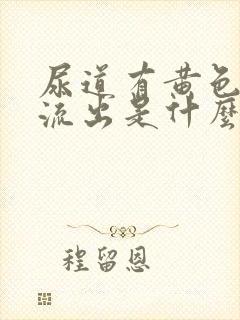 尿道有黄色
流出是什麼
程留恩